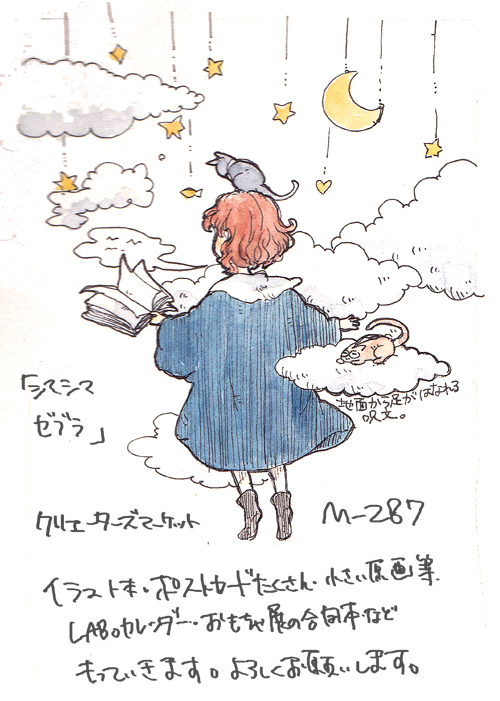 地面から足がはなれる
呪文。
「シマシマ
ゼブラ」
クリエーターズマーケット M-287
イラスト本・ポストカードたくさん・小さい原画等
LABOカレンダー・おもちゃ展の合同本など
もっていきます。よろしくお願いします。